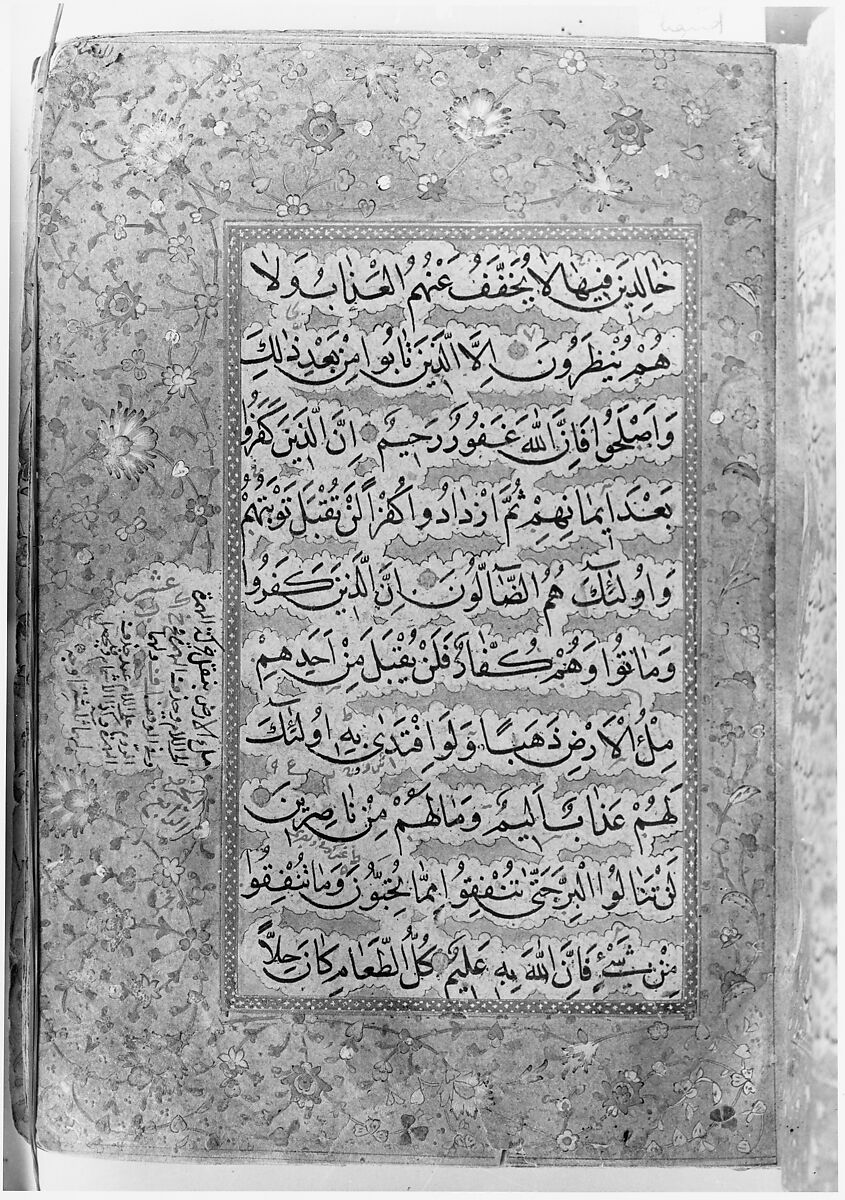 خَالِدِينَ فِيهَا لَا يُخَفَّفُ عَنْهُمُ الْعَذَابُ وَلَا
هُمْ يُنْظَرُونَ إِلَّا الَّذِينَ تَابُوا مِنْ بَعْدِ ذَٰلِكَ
وَاَصْلَحُوا فَاِنَّ اللّٰهَ غَفُورٌ رَحِيمٌ اِنَّ الَّذِينَ كَفَرُوا
بَعْدَ اِيمَانِهِمْ ثُمَّ ازْدَادُوا كُفْرًا لَنْ تُقْبَلَ تَوْبَتُهُمْ
وَاُولٰئِكَ هُمُ الضَّآلُّونَ اِنَّ الَّذِينَ كَفَرُوا
وَمَاتُوا وَهُمْ كُفَّارٌ فَلَنْ يُقْبَلَ مِنْ اَحَدِهِمْ
مِلْءُ الْاَرْضِ ذَهَبًا وَلَوِ افْتَدٰى بِهِ اُولٰئِكَ
لَهُمْ عَذَابٌ اَلِيمٌ وَمَا لَهُمْ مِنْ نَاصِرِينَ
لَنْ تَنَالُوا الْبِرَّ حَتّٰى تُنْفِقُوا مِمَّا تُحِبُّونَ وَمَا تُنْفِقُوا
مِنْ شَيْءٍ فَاِنَّ اللّٰهَ بِهِ عَلِيمٌ كُلُّ الطَّعَامِ كَانَ حِلًّا